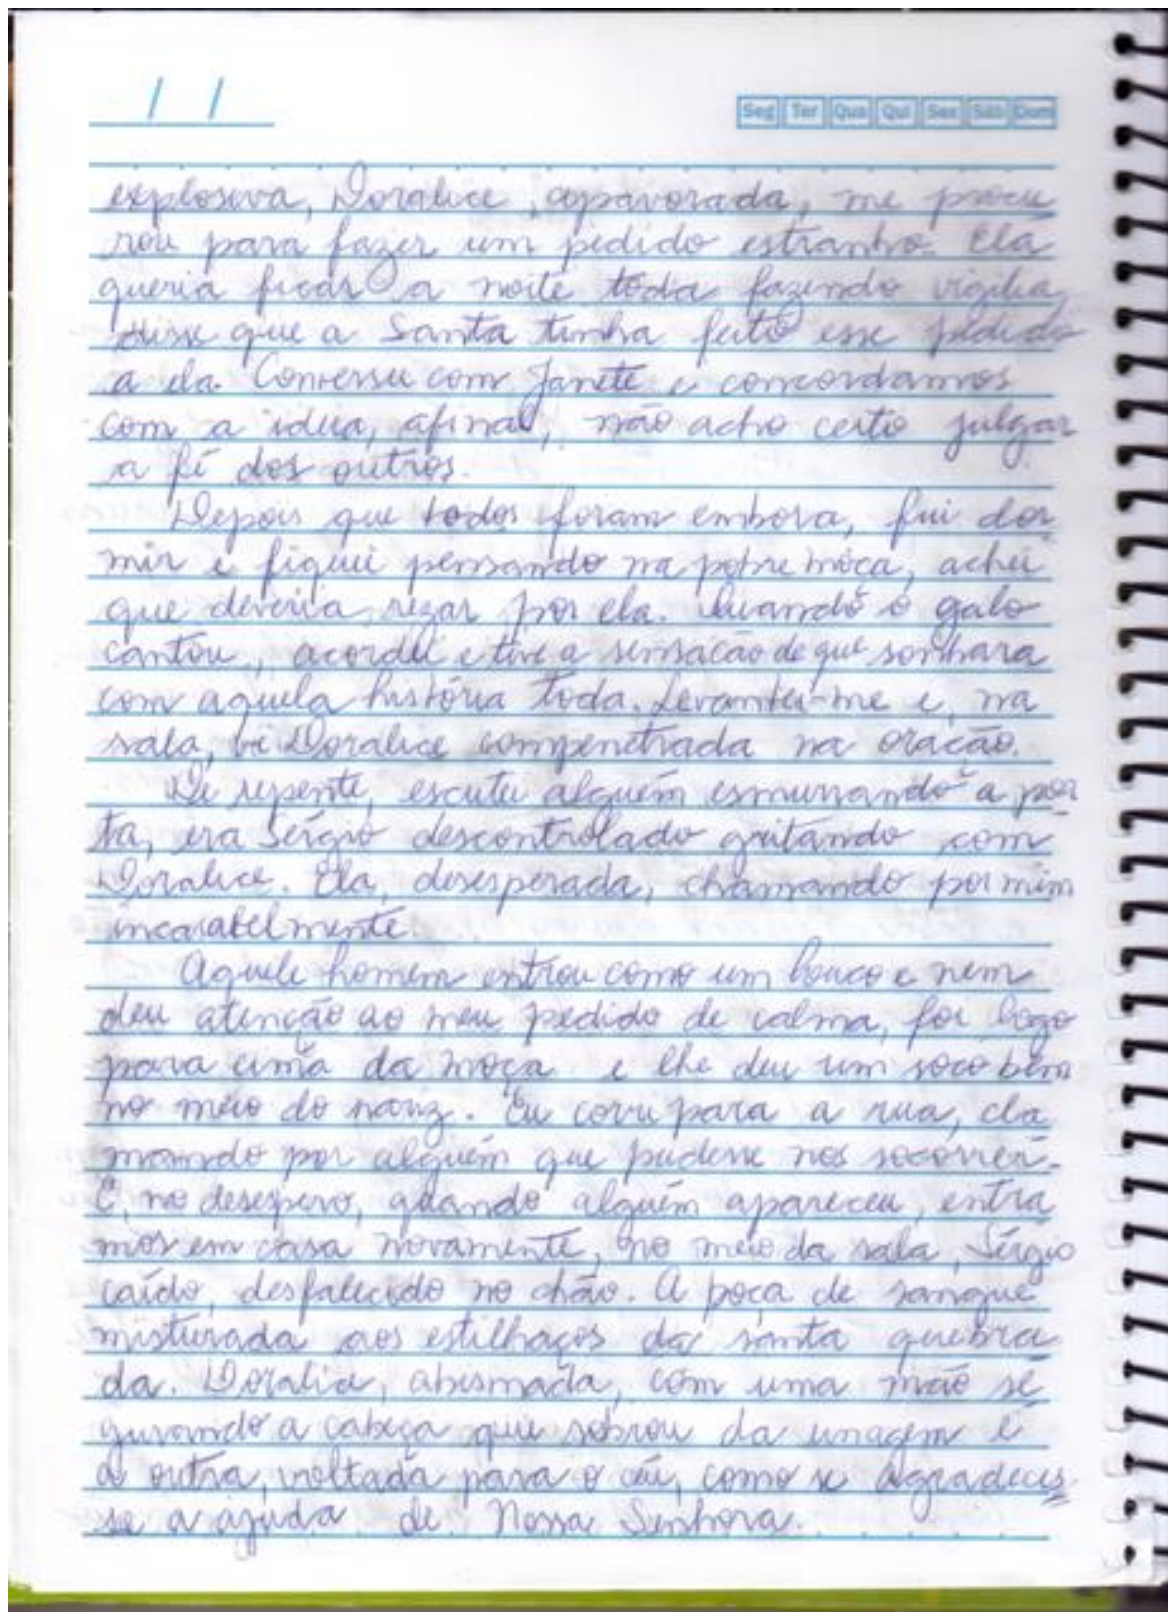 / /
Seg Ter Qua Qui Sex Sáb Dom
explosiva, Doralice, apavorada, me procu
rou para fazer um pedido estranho. Ela
queria ficar a noite toda fazendo vigília,
disse que a Santa tinha feito esse pedido
a ela. Conversei com Janete e concordamos
com a ideia, afinal, não acho certo julgar
a fé dos outros.
Depois que todos foram embora, fui dor
mir e fiquei pensando na pobre moça, achei
que deveria rezar por ela. Quando o galo
cantou, acordei e tive a sensação de que sonhara
com aquela história toda. Levantei-me e, na
sala, vi Doralice compenetrada na oração.
De repente, escutei alguém esmurrando a por
ta, era Sérgio descontrolado gritando com
Doralice. Ela, desesperada, chamando por mim
Aquele homem entrou como um louco e nem
deu atenção ao meu pedido de calma, foi logo
para cima da moça e lhe deu um soco bem
no meio do nariz. Eu corri para a rua, cla
mando por alguém que pudesse nos socorrer.
E, no desespero, quando alguém apareceu, entra
mos em casa novamente, no meio da sala, Sérgio
caído, desfalecido no chão. A poça de sangue
misturada aos estilhaços da santa quebra
da. Doralice, abismada, com uma mão se
gurando a cabeça que sobrou da imagem e
a outra, voltada para o céu, como se agradeces
se a ajuda de Nossa Senhora.